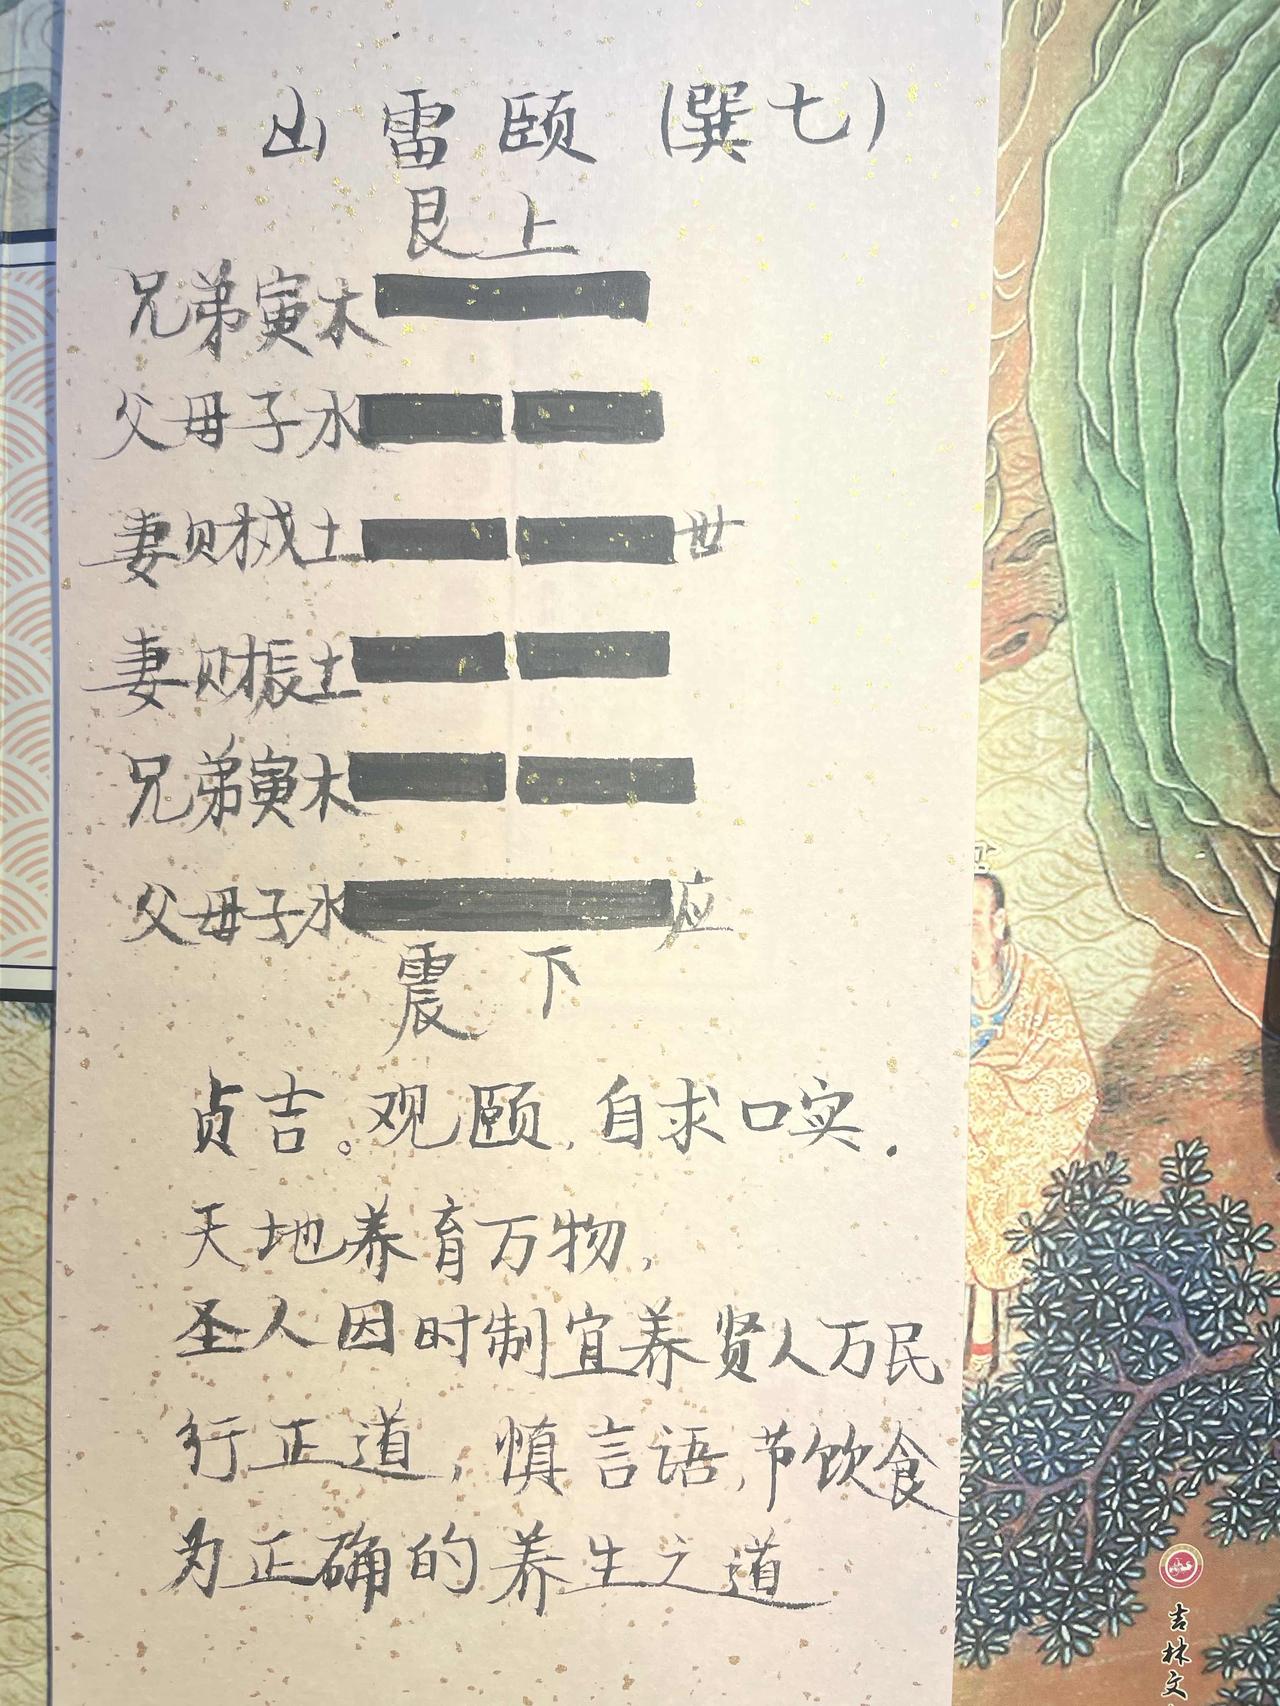 山雷颐(巽七)
艮上
兄弟寅木
父母子水
妻财戌土 世
妻财辰土
兄弟寅木
父母子水 应
震下
贞吉。观颐,自求口实.
天地养育万物,
圣人因时制宜养贤人万民
行正道,慎言语,节饮食
为正确的养生之道
吉林文